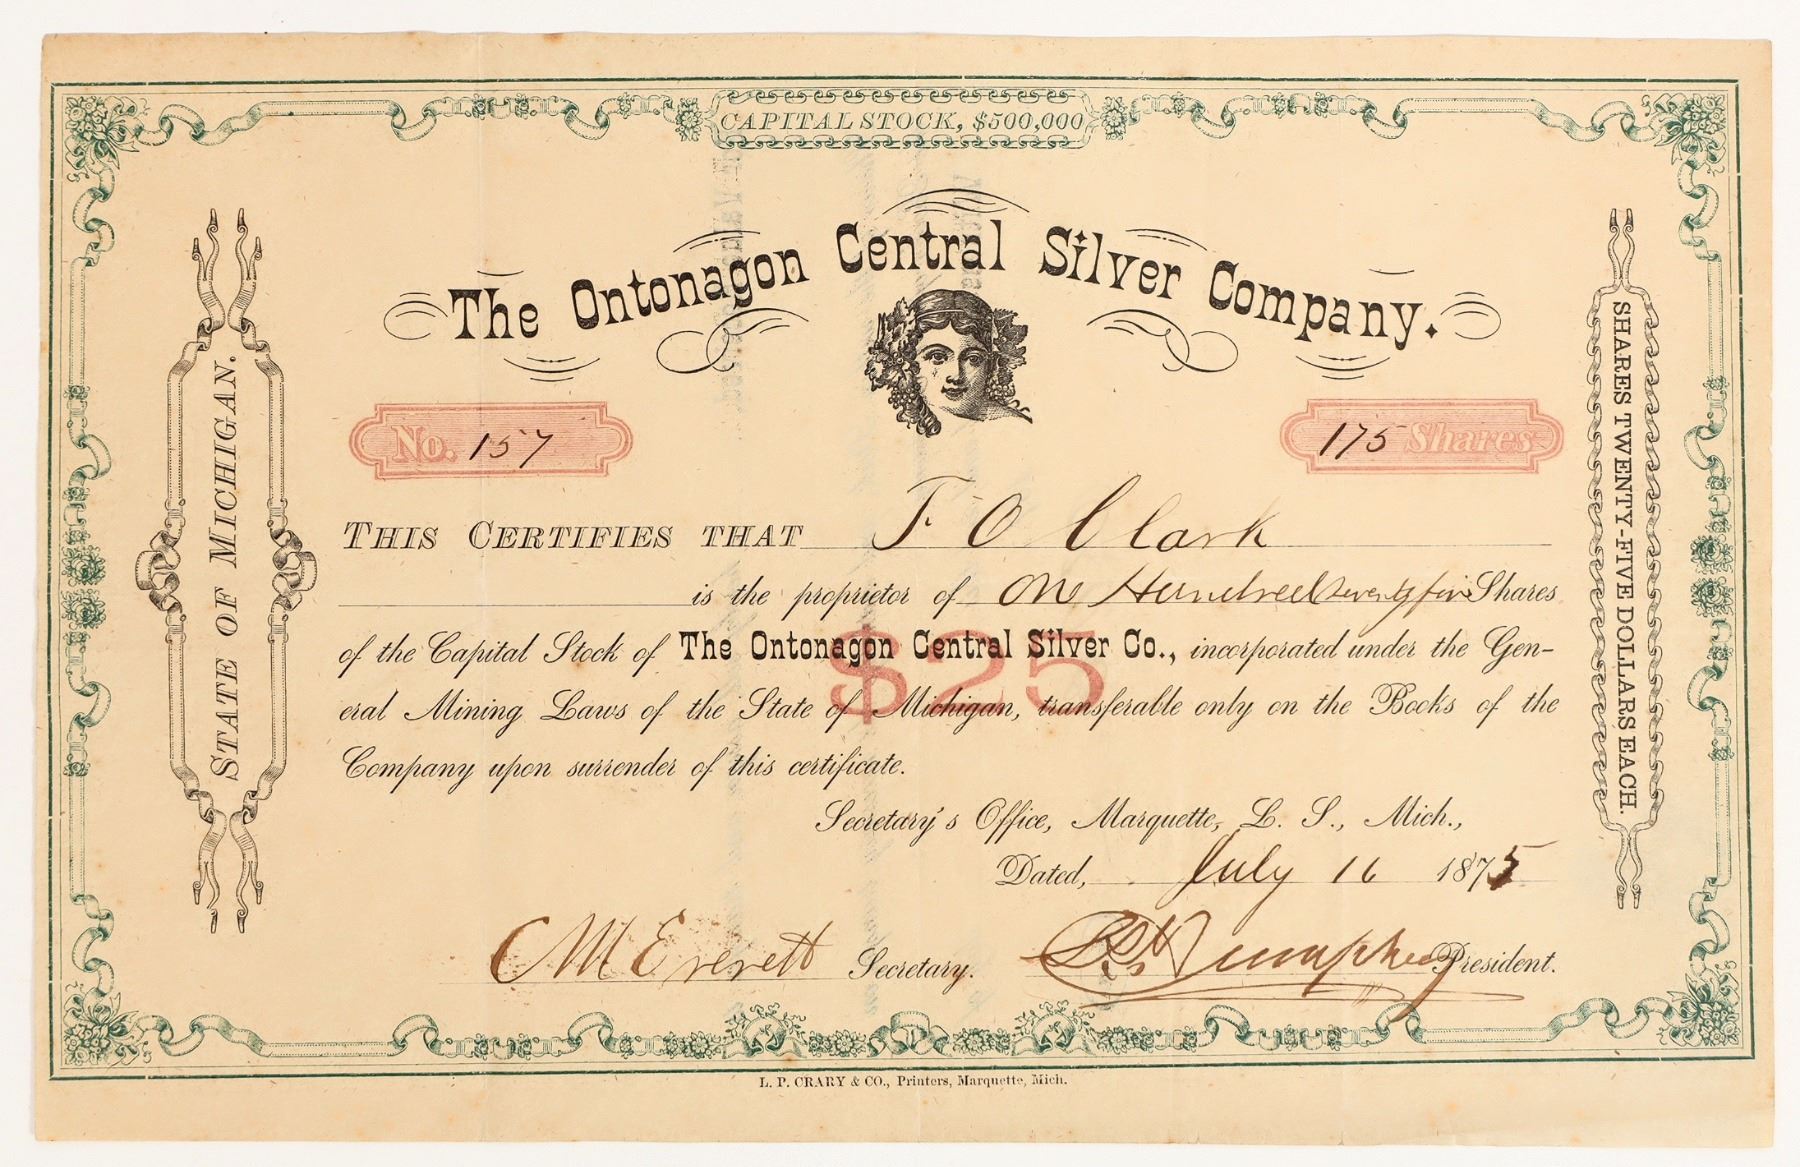 CAPITAL STOCK, $500,000
The Ontonagon Central Silver Company.
STATE OF MICHIGAN.
SHARES TWENTY-FIVE DOLLARS EACH.
No. 157
175 Shares
THIS CERTIFIES THAT F. O Clark
is the proprietor of One Hundred seventy five Shares
of the Capital Stock of The Ontonagon Central Silver Co., incorporated under the Gen-
eral Mining Laws of the State of Michigan, transferable only on the Books of the
Company upon surrender of this certificate.
$25
Secretary's Office, Marquette, L. S., Mich.,
Dated, July 16 1875
C M Everett Secretary. President.
L. P. CRARY & CO., Printers, Marquette, Mich.